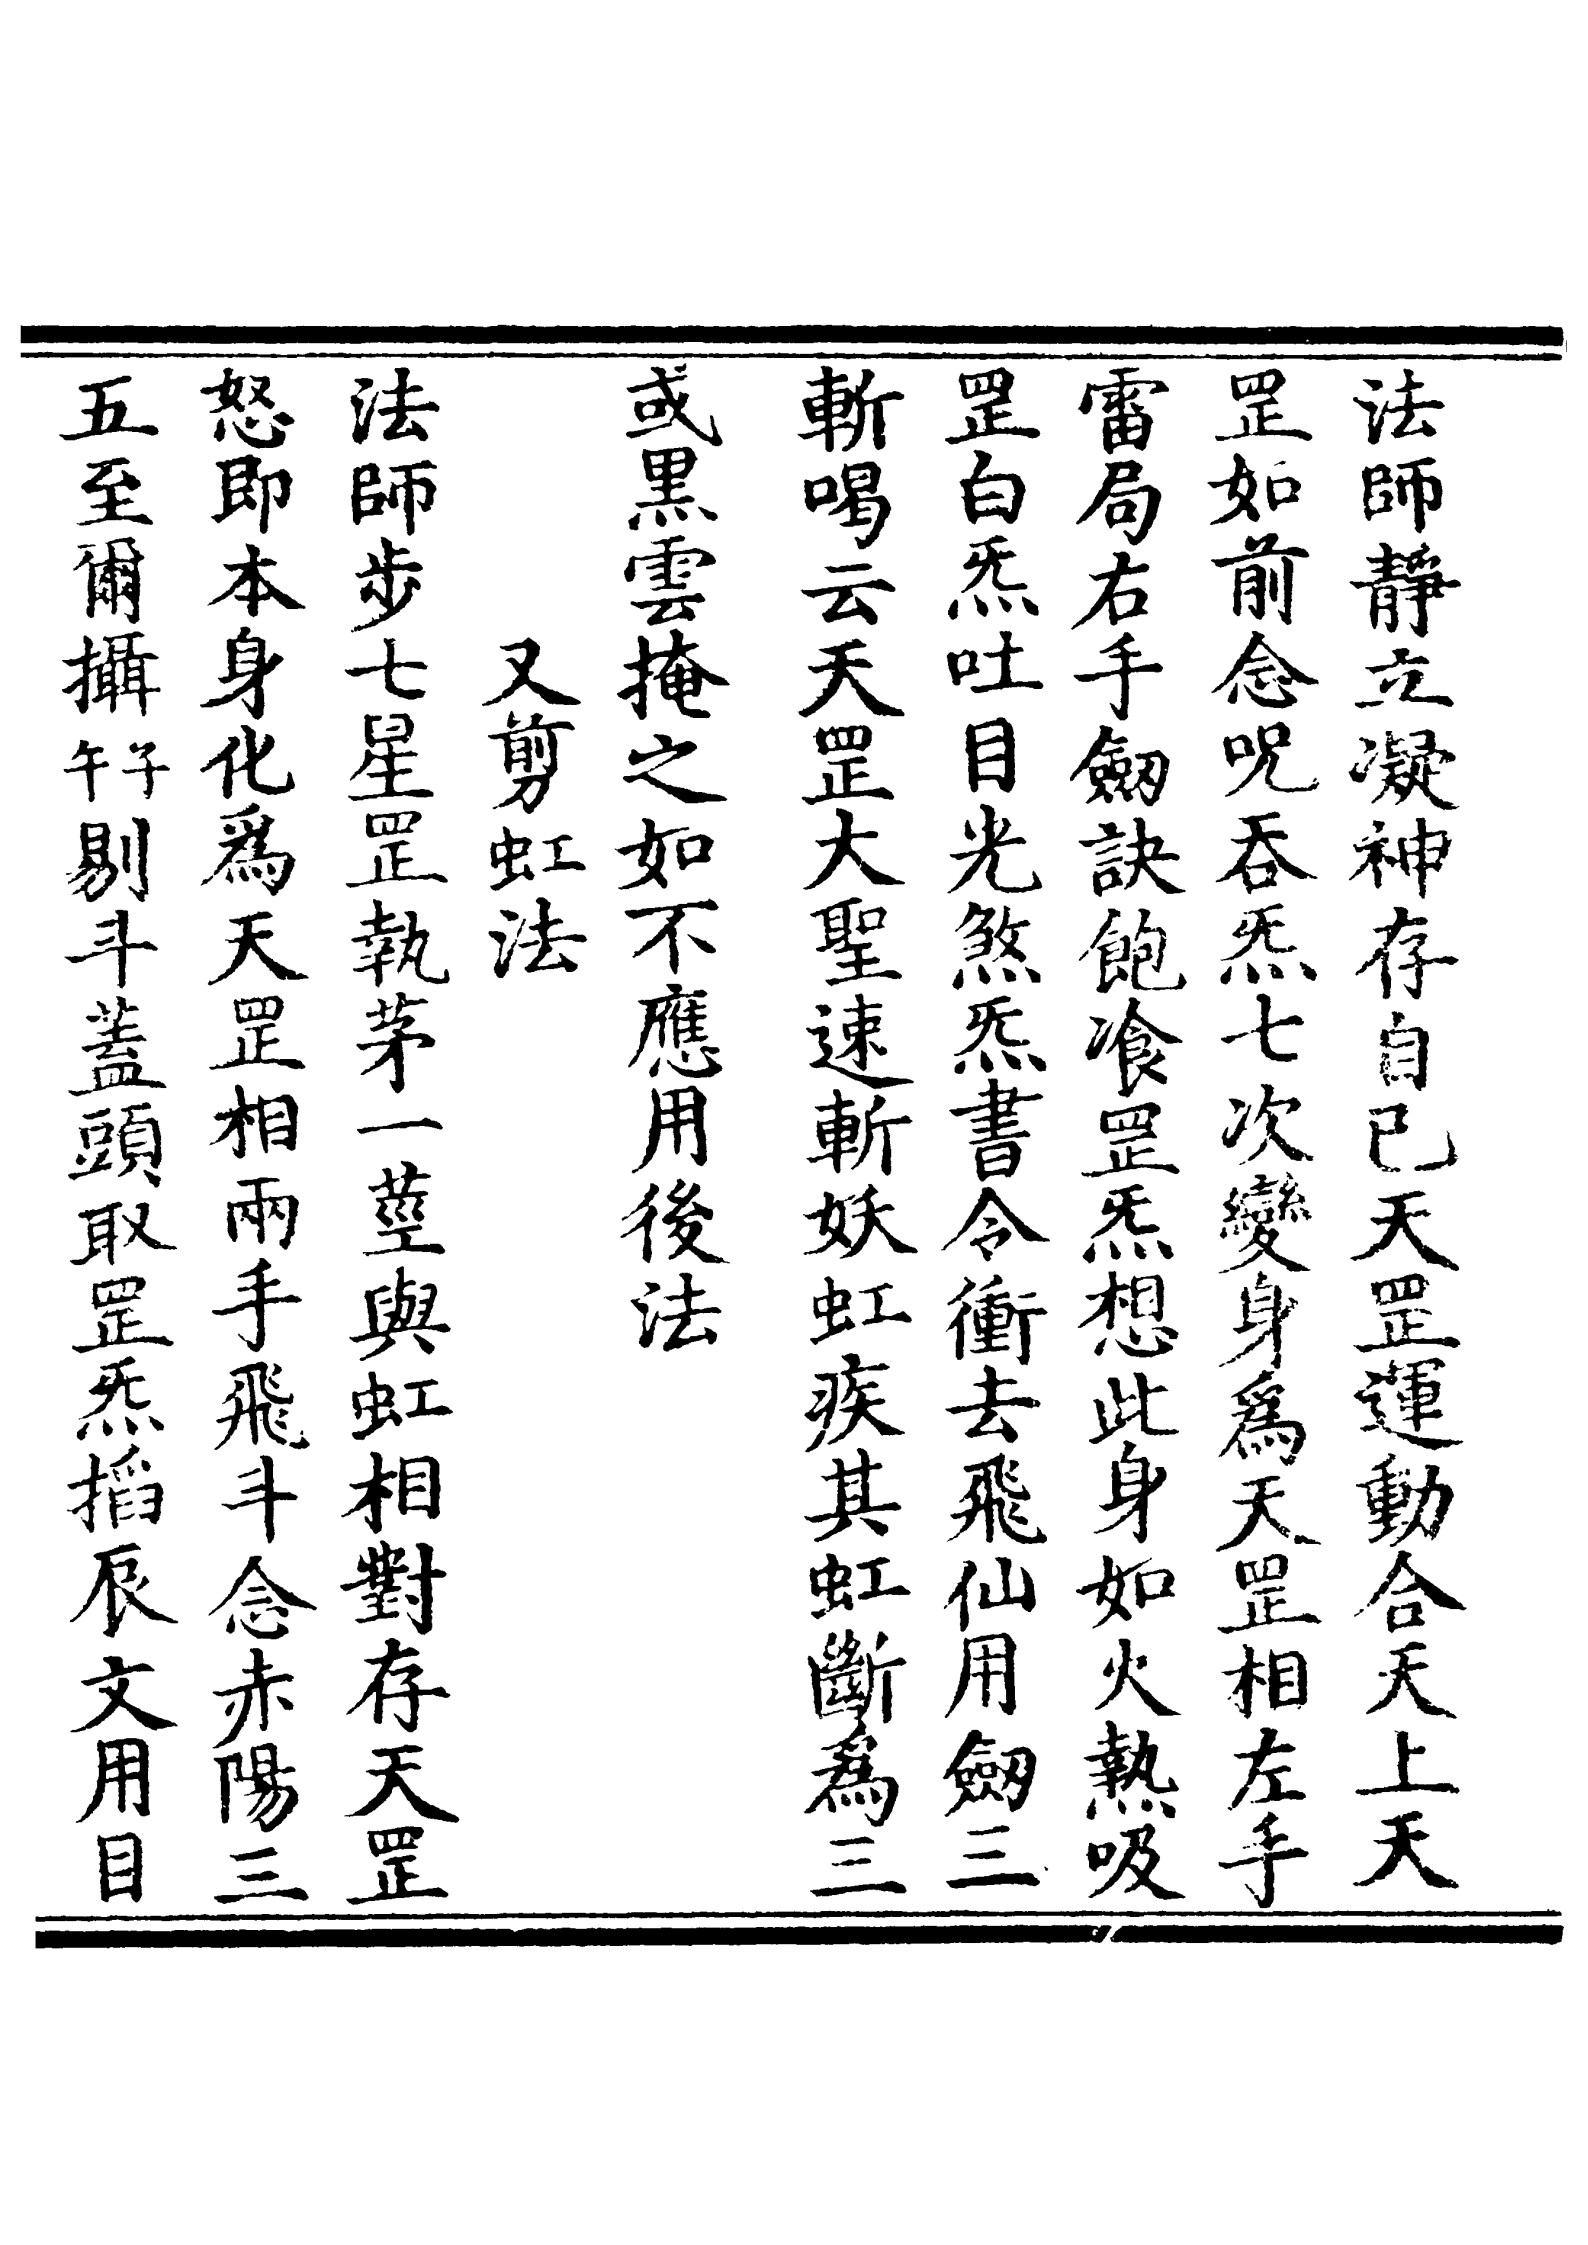 法師靜立凝神存自已天罡運動合天上天
罡如前念呪吞炁七次變身爲天罡相左手
雷局右手劒訣飽飡罡炁想此身如火熱吸
罡白炁吐目光煞炁書令衝去飛仙用劒三
斬喝云天罡大聖速斬妖虹疾其虹斷爲三
或黒雲掩之如不應用後法
又剪虹法
法師步七星罡執茅一莖與虹相對存天罡
怒即本身化爲天罡相兩手飛斗念赤陽三
五至儞攝子午剔斗蓋頭取罡炁搯辰文用目